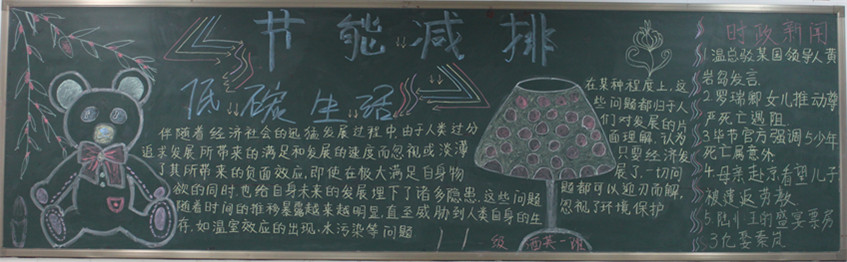 节能减排
低碳生活
伴随着经济社会的迅猛发展过程中,由于人类过分
追求发展所带来的满足和发展的速度而忽视或淡薄
了其所带来的负面效应,即使在极大满足自身物
欲的同时,也给自身未来的发展埋下了诸多隐患,这些问题
随着时间的推移暴露越来越明显,直至威胁到人类自身的生
存,如温室效应的出现,水污染等问题
在某种程度上,这
些问题都归于人
们对发展的片
面理解,认为
只要经济发
展了,一切问
题都可以迎刃而解,
忽视了环境保护
11级 酒英一班
时政新闻
1温总驳某国领导人黄
岩岛发言
2罗瑞卿女儿推动尊
严死亡遇阻
3毕节官方强调5少年
死亡属意外
4母亲赴京看望儿子
被遣返劳教
5陆川 的盛宴票房
3危娶秦岚